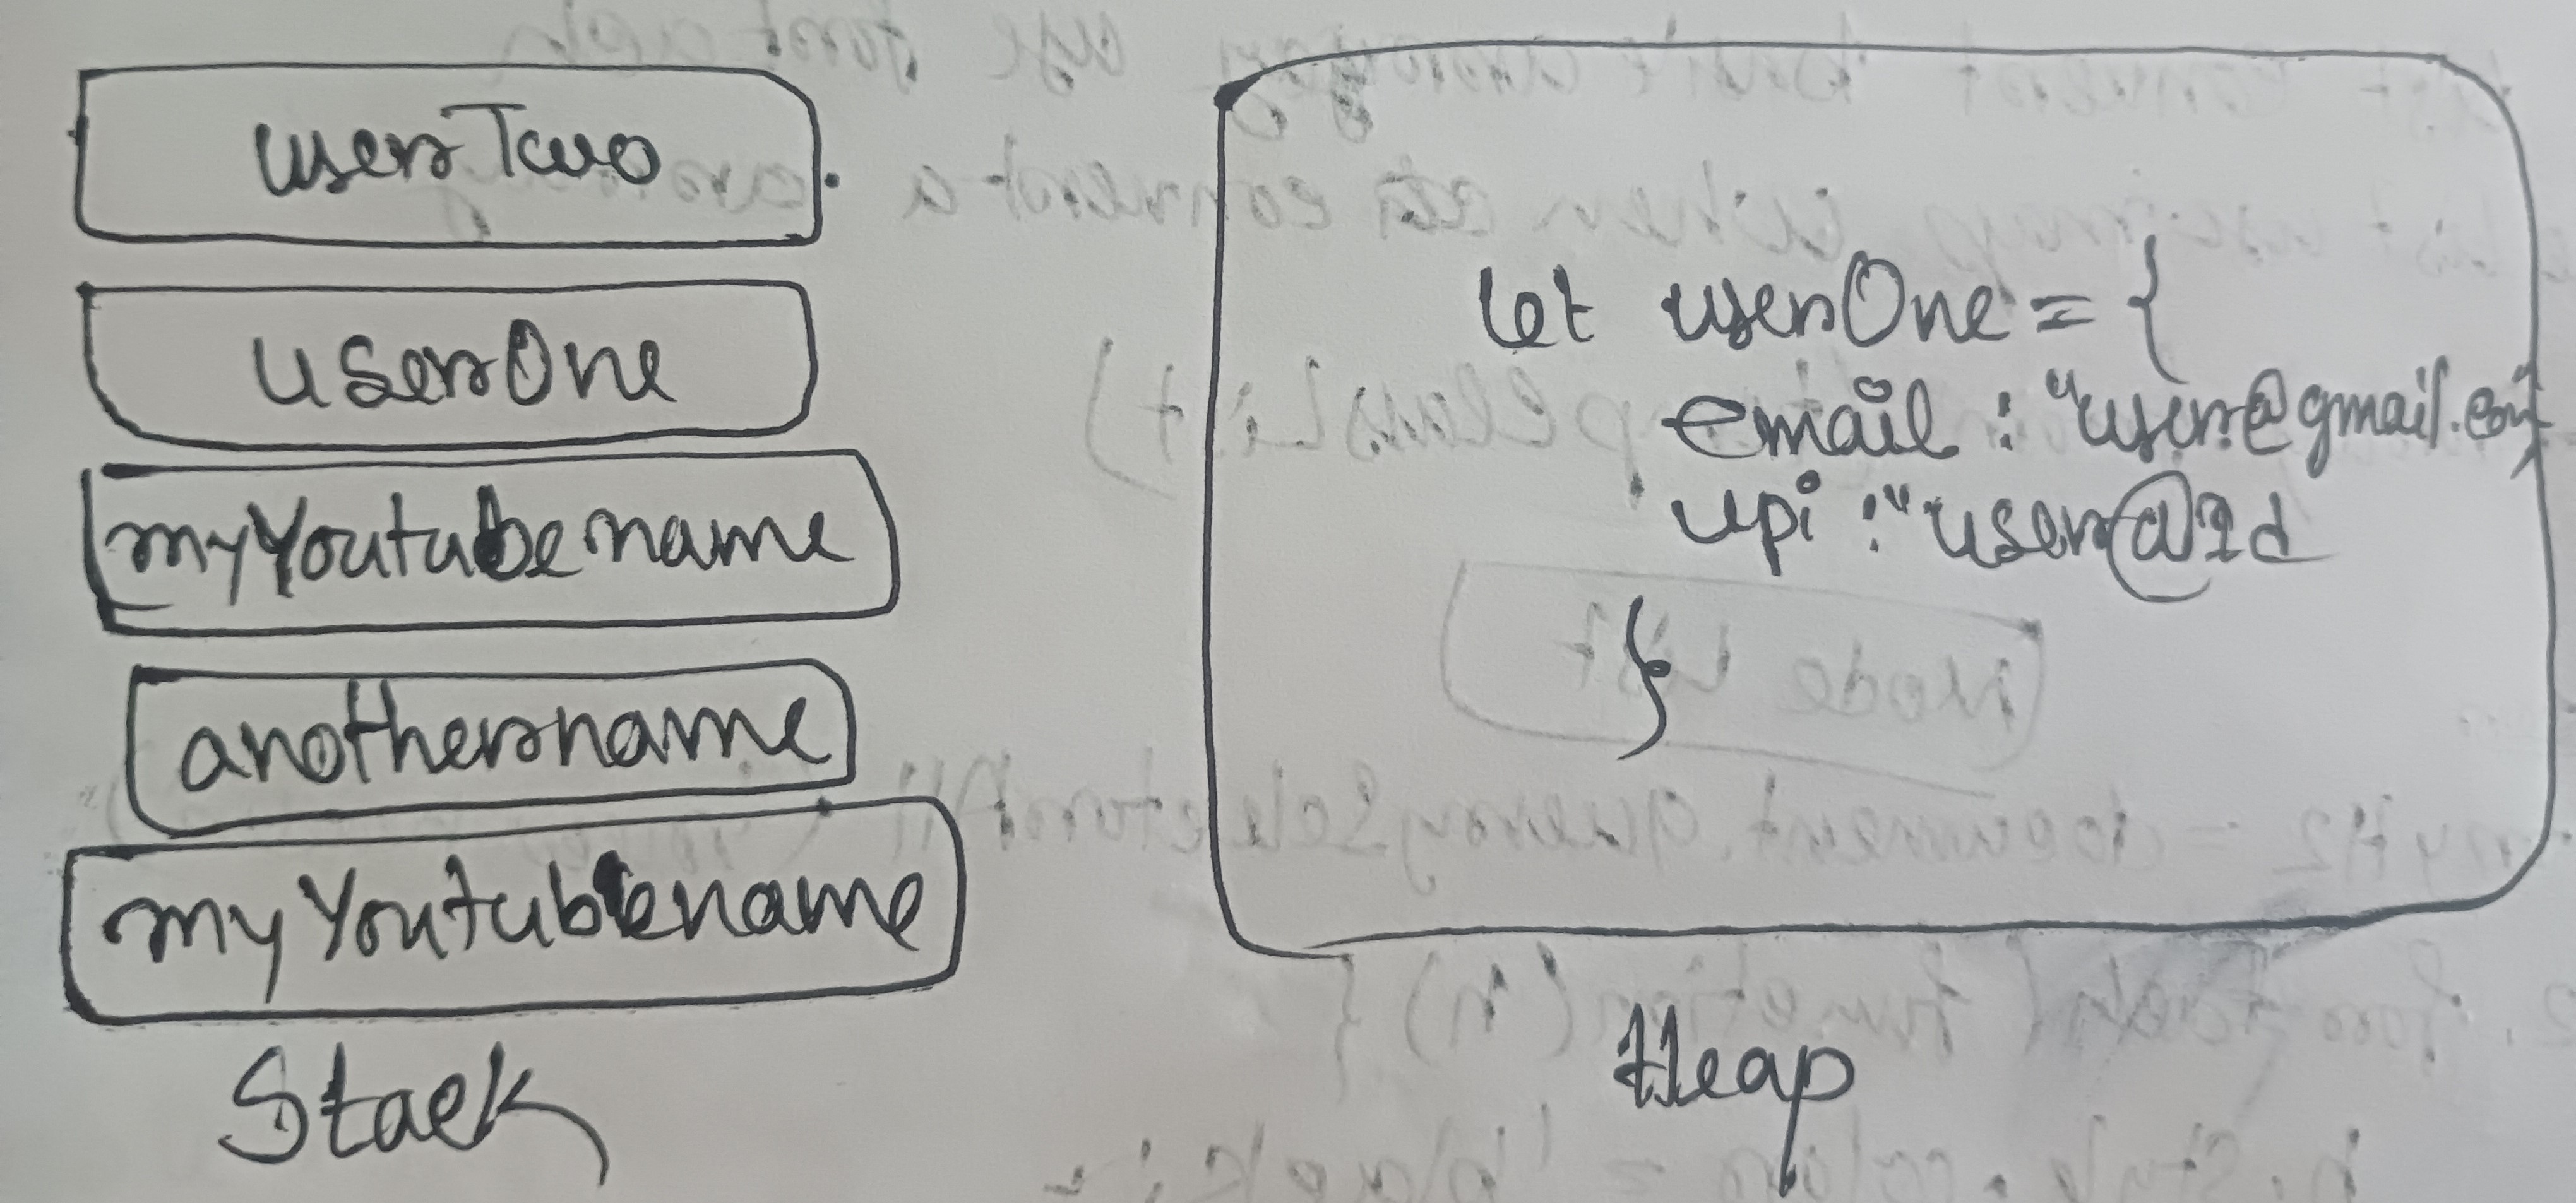 userTwo
userOne
myYoutubename
anothername
myYoutubename
Stack
let userOne = {
email : "user@gmail.com"
upi : "user@Id
}
Heap